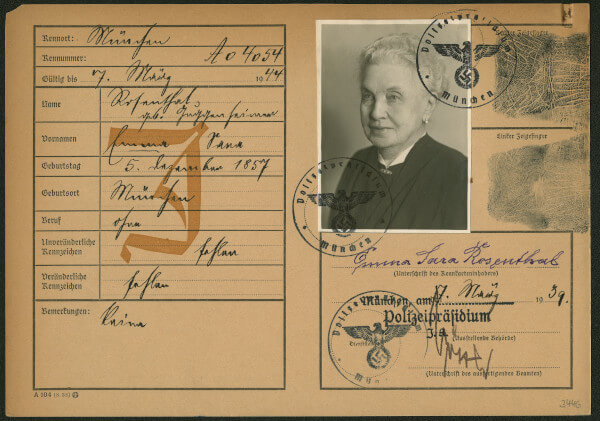 Kennort: München
Kennummer: A 04054
Gültig bis 7. März 1944
Name Rosenthal
geb. Guggenheimer
Vornamen Emma Sara
Geburtstag 5. Dezember 1857
Geburtsort München
Beruf ohne
Unveränderliche Kennzeichen fehlen
Veränderliche Kennzeichen fehlen
Bemerkungen: Keine
J
A 104
Polizeipräsidium
München
Rechter Zeigefinger
Linker Zeigefinger
Polizeipräsidium
München
Emma Sara Rosenthal
(Unterschrift des Kennkarteninhabers)
München, am 7. März 1939.
Polizeipräsidium
(Ausstellende Behörde)
J.A.
(Unterschrift des ausfertigenden Beamten)
Polizeipräsidium